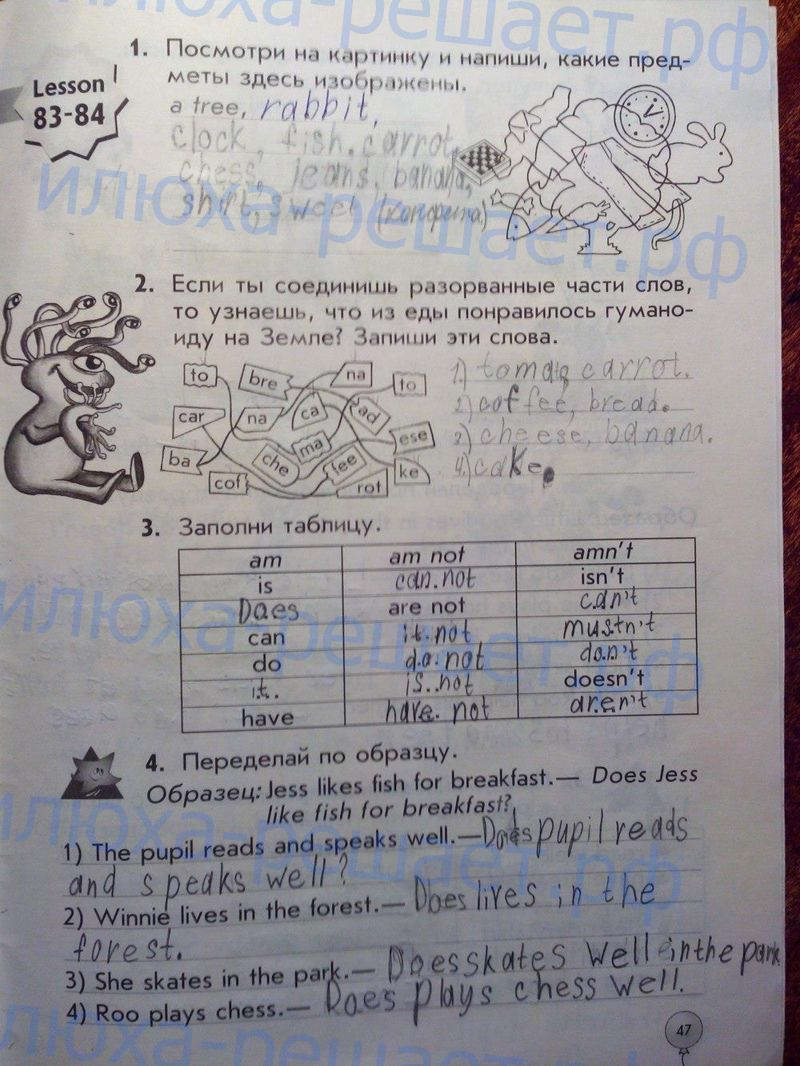 илюха-решает.рф
Lesson 83-84
1. Посмотри на картинку и напиши, какие пред-
меты здесь изображены.
a tree, rabbit,
clock, fish, carrot,
chess, jeans, banana,
shirt, sweet (конфета)
илюха-решает.рф
2. Если ты соединишь разорванные части слов,
то узнаешь, что из еды понравилось гумано-
иду на Земле? Запиши эти слова.
to bre na to
car na ca ad
ba che ma fee ese
cof rot ke
1) tomato, carrot.
2) coffee, bread.
3) cheese, banana.
4) cake.
3. Заполни таблицу.
am am not amn't
is can not isn't
Does are not can't
can it not mustn't
do do not don't
it is not doesn't
have have not aren't
илюха-решает.рф
4. Переделай по образцу.
Образец: Jess likes fish for breakfast.— Does Jess
like fish for breakfast?
1) The pupil reads and speaks well.— Does pupil reads
and speaks well?
2) Winnie lives in the forest.— Does lives in the
forest.
3) She skates in the park.— Does skates well in the park
4) Roo plays chess.— Does plays chess well.
илюха-решает.рф
47
илюха-решает.рф